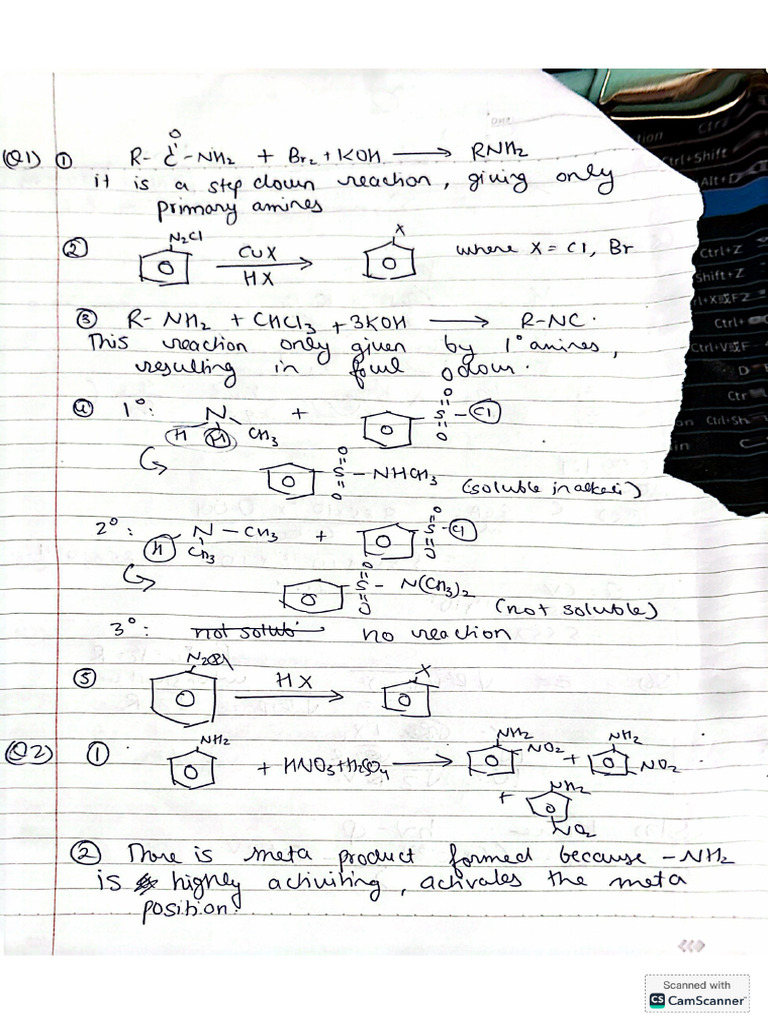 Q1) ① R-C-NH2 + Br2 + KOH → RNH2
O
it is a step down reaction, giving only
primary amines
② N2Cl CuX HX → X where X = Cl, Br
③ R-NH2 + CHCl3 + 3KOH → R-NC.
This reaction only given by 1° amines,
resulting in foul odour.
④ 1°: H N H CH3 + O S O - Cl
O S O - NHCH3 (soluble in alkali)
2°: H N - CH3 CH3 + O S O - Cl
O S O - N(CH3)2 (not soluble)
3°: not solub no reaction
⑤ N2Cl HX → X
Q2) ① NH2 + HNO3 + H2SO4 → NH2 NO2 + NH2 NO2
+ NH2 NO2
② There is meta product formed because -NH2
is highly activiting, activates the meta
position.
ction
Ctrl+Shift
Alt+D
Ctrl+Z
Shift+Z
Ctrl+X或FZ
Ctrl+
Ctrl+V或F
D
Ctr
Ctrl+Sh
in C
Scanned with
CS CamScanner